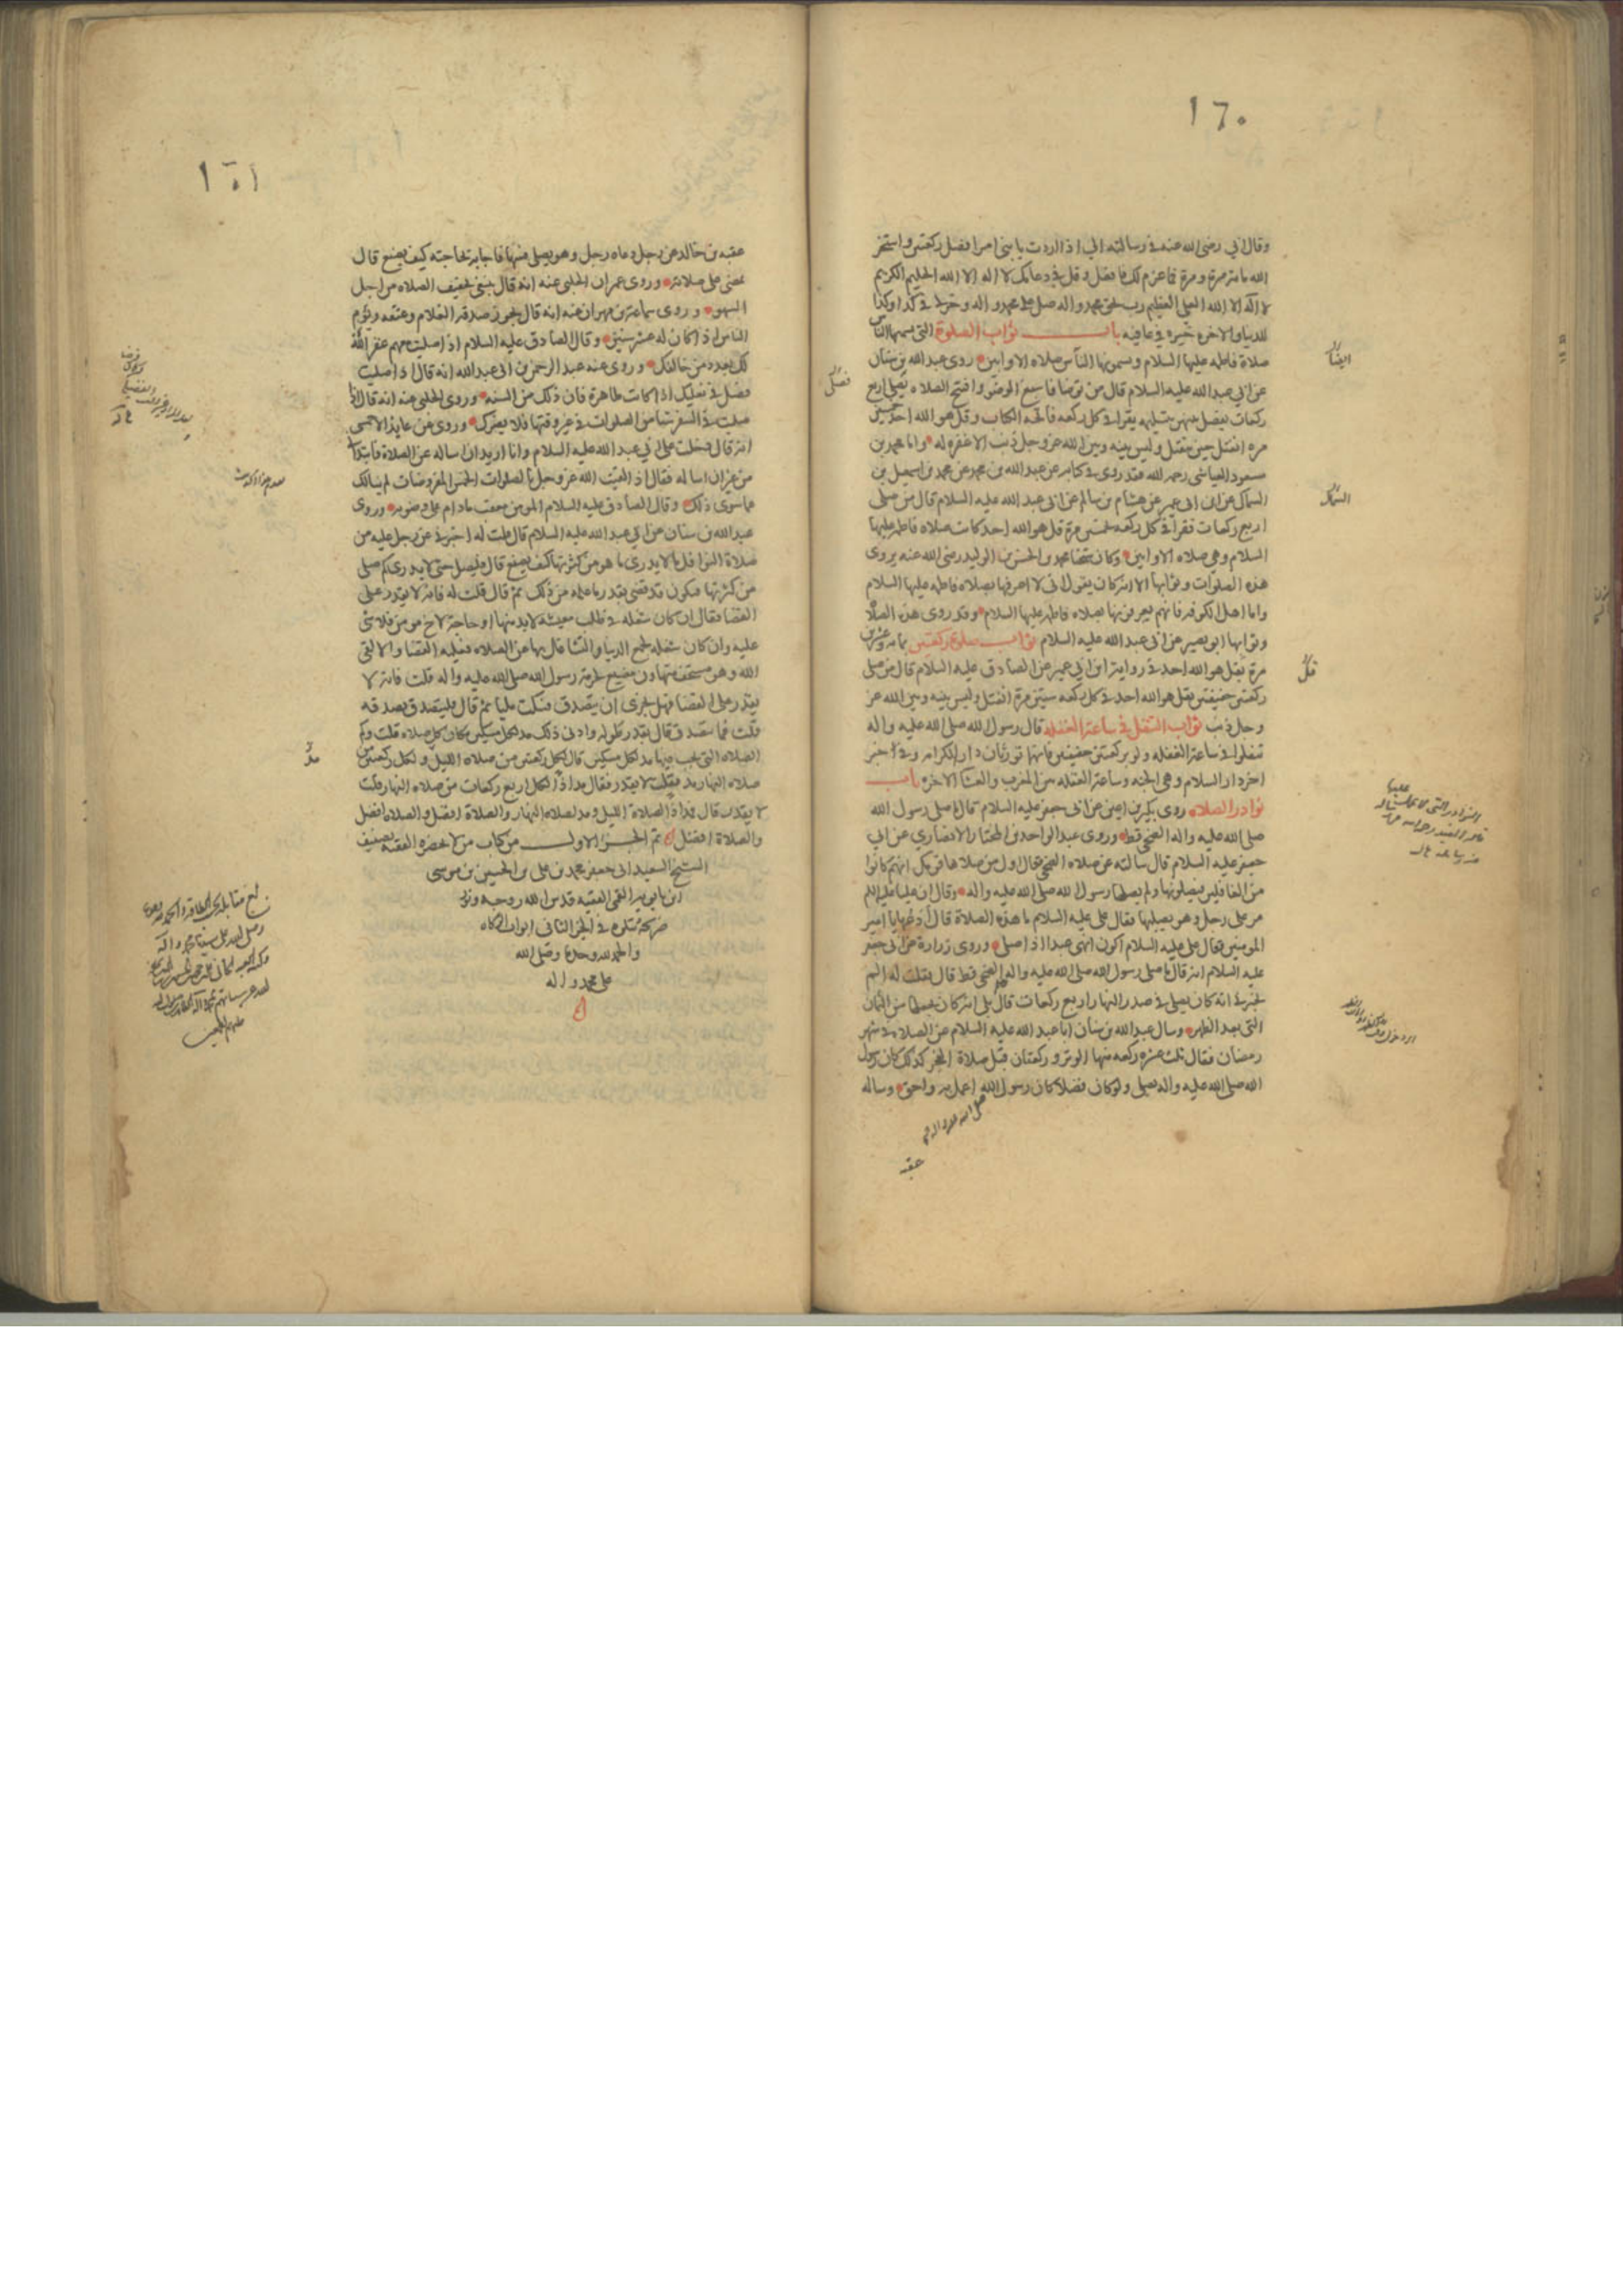 ١٦٠
وقال ابي رضى الله عنه في رسالته الي اذا اردت يا بني امرا فصل ركعتين واستخر
الله مائة مرة ومرة فما عزم لك فافعل وقل في دعائك لا اله الا الله الحليم الكريم
لا اله الا الله العلى العظيم رب بحق محمد واله صل على محمد واله وخر لي في كذا وكذا
للدنيا والاخره خيره في عافيه باب ثواب الصلوة التى يسميها الناس
صلاة فاطمه عليها السلام ويسمونها الناس صلاه الاوابين روى عبد الله بن سنان
عن ابي عبد الله عليه السلام قال من توضا فاسبغ الوضو وافتتح الصلاه فصلى اربع
ركعات يفصل بينهن بتسليمه يقرا في كل ركعه فاتحه الكتاب وقل هو الله احد خمسين
مره انفتل حين ينفتل وليس بينه وبين الله عز وجل ذنب الا غفره له واما محمد بن
مسعود العياشى رحمه الله فقد روى في كتابه عن عبد الله بن محمد عن محمد بن اسمعيل بن
السماك عن ابن ابى عمير عن هشام بن سالم عن ابى عبد الله عليه السلام قال من صلى
اربع ركعات فقرا في كل ركعه خمسين مرة قل هو الله احد كانت صلاه فاطمه عليها
السلام وهي صلاه الاوابين وكان شيخنا محمد بن الحسن بن الوليد رضى الله عنه يروى
هذه الصلوات وثوابها الا انه كان يقول انى لا اعرفها بصلاه فاطمه عليها السلام
واما اهل الكوفه فانهم يعرفونها بصلاه فاطمه عليها السلام وقد روى هذه الصلا
وثوابها ابو بصير عن ابى عبد الله عليه السلام ثواب صلوة ركعتين بمائه وعشرين
مرة بقل هو الله احد في رواية ابن ابي عمير عن الصادق عليه السلام قال من صلى
ركعتين خفيفتين بقل هو الله احد في كل ركعه ستين مرة انفتل وليس بينه وبين الله عز
وجل ذنب ثواب التنفل في ساعة الغفله قال رسول الله صلى الله عليه واله
تنفلوا في ساعة الغفله ولو بركعتين خفيفتين فانهما تورثان دار الكرامه وفي خبر
اخر دار السلام وهي الجنه وساعة الغفله بين المغرب والعشا الاخره باب
نوادر الصلاه روى بكير بن اعين عن ابى جعفر عليه السلام قال ما صلى رسول الله
صلى الله عليه واله الضحى قط وروى عبد الواحد بن المختار الانصاري عن ابي
جعفر عليه السلام قال سالته عن صلاه الضحى فقال اول من صلاها قومك انهم كانوا
من الغافلين فيصلونها ولم يصلها رسول الله صلى الله عليه واله وقال ان عليا عليه السلم
مر على رجل وهو يصليها فقال على عليه السلام ما هذه الصلاة قال ادعها يا امير
المومنين فقال على عليه السلام اكون انهى عبدا اذا صلى وروى زرارة عن ابى جعفر
عليه السلام انه قال ما صلى رسول الله صلى الله عليه واله الضحى قط قال فقلت له الم
تخبرني انه كان يصلى في صدر النهار اربع ركعات قال بلى انه كان يجعلها من الثمان
التى بعد الظهر وسال عبد الله بن سنان ابا عبد الله عليه السلام عن الصلاه في شهر
رمضان فقال ثلث عشره ركعه منها الوتر وركعتان قبل صلاة الفجر كذلك كان رسول
الله صلى الله عليه واله يصلى ولو كان فضلا كان رسول الله اعمل به واحق وساله
صلى الله عليه واله
عقبه
ايضا
فصل
السماك
قل
١٦١
عقبه بن خالد عن رجل دعاه رجل وهو يصلى فسها فاجابه بحاجته كيف يصنع قال
يمضى على صلاته وروى عمران الحلبى عنه انه قال ينبغي تخفيف الصلاه من اجل
السهو وروى سماعة بن مهران عنه انه قال يجوز صدقه الغلام وعتقه ويؤم
الناس اذا كان له عشر سنين وقال الصادق عليه السلام اذا صليت معهم غفر الله
لك بعدد من خالفك وروى عنه عبد الرحمن بن ابى عبد الله انه قال اذا صليت
فصل في نعليك اذا كانت طاهرة فان ذلك من السنه وروى الحلبى عنه انه قال اذا
صليت في السفر شيئا من الصلوات في غير وقتها فلا يضرك وروى عن عايذ الاحمسى
انه قال دخلت على ابي عبد الله عليه السلام وانا اريد ان اساله عن الصلاة فابتدا
من غير ان اساله فقال اذا لقيت الله عز وجل بالصلوات الخمس المفروضات لم يسالك
عما سوى ذلك وقال الصادق عليه السلام المومن معقب ما دام على وضوئه وروى
عبد الله بن سنان عن ابي عبد الله عليه السلام قال قلت له اخبرنى عن رجل عليه من
صلاة النوافل ما لا يدرى ما هو من كثرتها كيف يصنع قال فليصل حتى لا يدرى كم صلى
من كثرتها فيكون قد قضى بقدر ما علمه من ذلك ثم قال قلت له فانه لا يقدر على
القضا فقال ان كان شغله في طلب معيشه لابد منها او حاجة لاخ مومن فلا شئ
عليه وان كان شغله لجمع الدنيا والتشاغل بها عن الصلاه فعليه القضا والا لقى
الله وهو مستخف متهاون مضيع لحرمة رسول الله صلى الله عليه واله قلت فانه لا
يقدر على القضا فهل يجزى ان يتصدق فسكت مليا ثم قال فليتصدق بصدقه
قلت فما يتصدق قال بقدر طوله وادنى ذلك مد لكل مسكين مكان كل صلاه قلت وكم
الصلاه التى يجب فيها مد لكل مسكين قال لكل ركعتين من صلاه الليل ولكل ركعتين من
صلاه النهار مد فقلت لا يقدر فقال مد اذا لكل اربع ركعات من صلاه النهار قلت
لا يقدر قال فمد اذا لصلاة الليل ومد لصلاه النهار والصلاة افضل والصلاه افضل
والصلاة افضل تم الجزو الاول من كتاب من لا يحضره الفقيه تصنيف
الشيخ السعيد ابى جعفر محمد بن على بن الحسين بن موسى
ابن بابويه القمى الفقيه قدس الله روحه ونور
ضريحه يتلوه في الجزا الثانى ابواب الزكاه
والحمد لله وحده وصلى الله
على محمد واله
مد